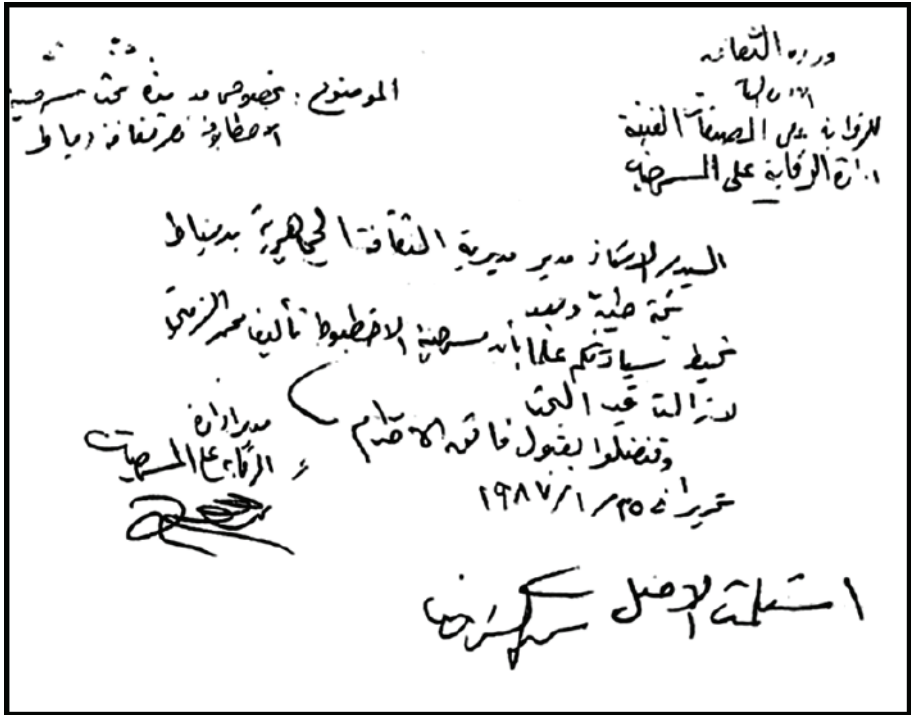 وزارة الثقافة
الادارة
للرقابة على المصنفات الفنية
ادارة الرقابة على المسرحيات
الموضوع : بخصوص مسرحية
الاخطبوط قصر ثقافة دمياط
السيد الاستاذ مدير مديرية الثقافة الجماهيرية بدمياط
تحية طيبة وبعد
نحيط سيادتكم علما بأن مسرحية الاخطبوط تأليف محمد الزرقي
لازالت قيد البحث
وتفضلوا بقبول فائق الاحترام
مدير ادارة
الرقابة على المسرحيات
تحريرا في ٢٥/١/١٩٨٧
استلمت الاصل